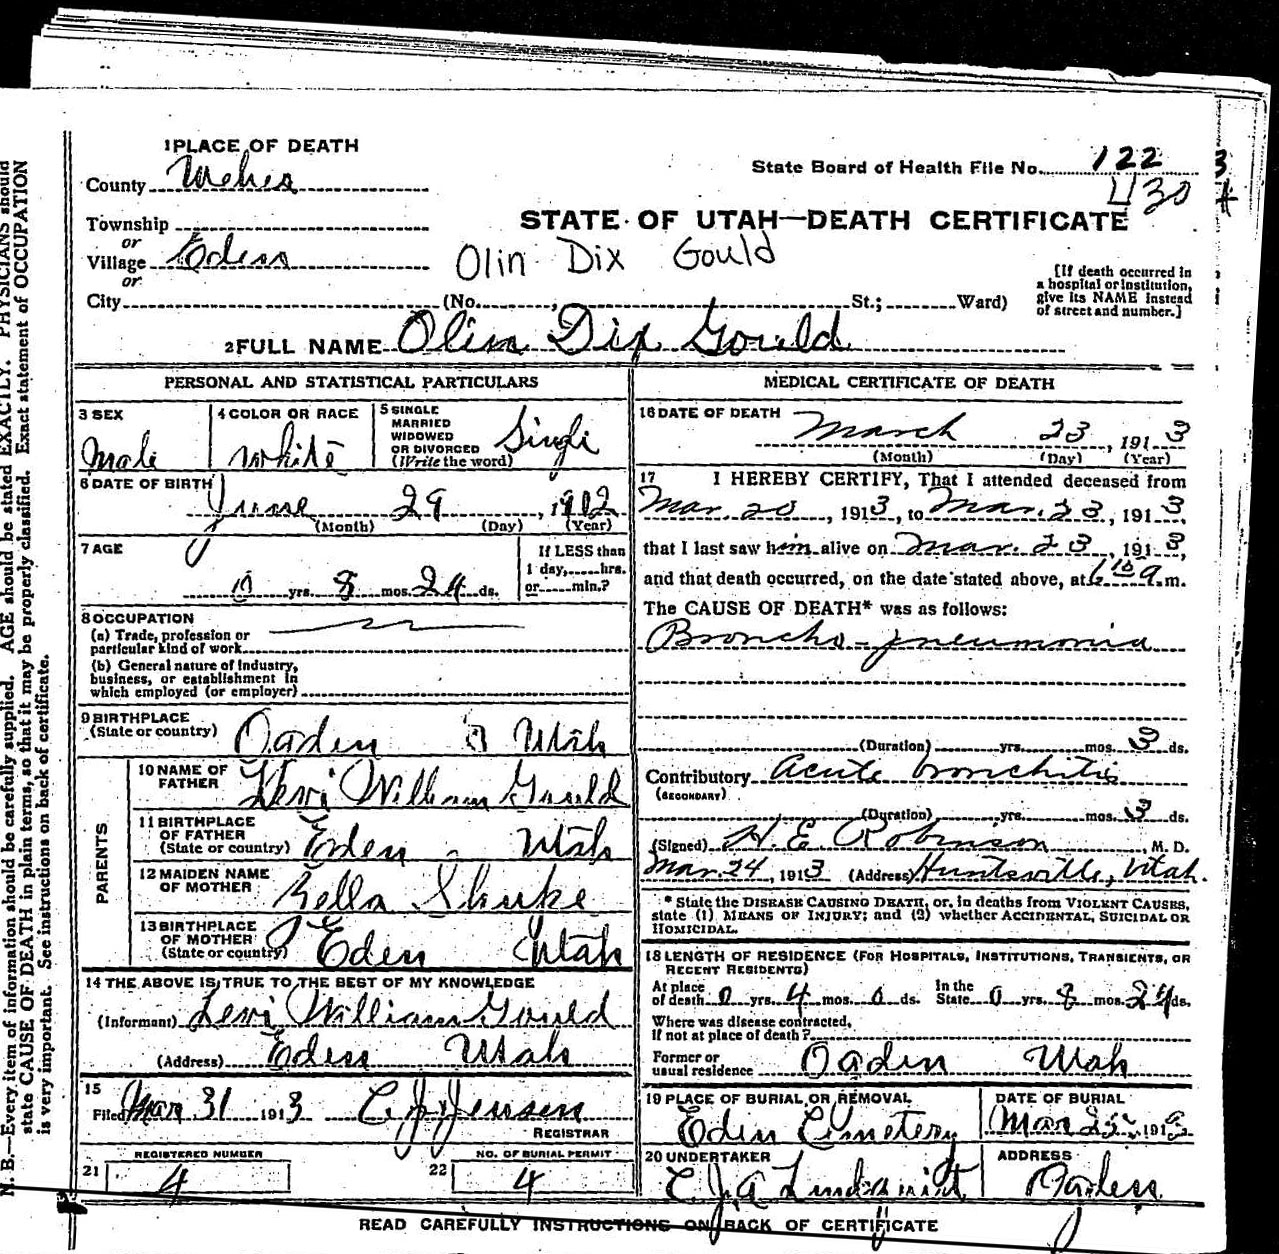 1 PLACE OF DEATH
County Weber
State Board of Health File No. 122 3
430 #
Township
STATE OF UTAH—DEATH CERTIFICATE
or
Village Eden
Olin Dix Gould
or
City (No. , St.; Ward)
[If death occurred in
a hospital or institution,
give its NAME instead
of street and number.]
2 FULL NAME Olin Dix Gould
PERSONAL AND STATISTICAL PARTICULARS
3 SEX
Male
4 COLOR OR RACE
White
5 SINGLE
MARRIED
WIDOWED
OR DIVORCED
(Write the word)
Single
6 DATE OF BIRTH
June 29, 1912
(Month) (Day) (Year)
7 AGE
0 yrs. 8 mos. 24 ds.
If LESS than
1 day, hrs.
or min.?
8 OCCUPATION
(a) Trade, profession or
particular kind of work
(b) General nature of industry,
business, or establishment in
which employed (or employer)
9 BIRTHPLACE
(State or country)
Ogden Utah
PARENTS
10 NAME OF
FATHER
Levi William Gould
11 BIRTHPLACE
OF FATHER
(State or country)
Eden Utah
12 MAIDEN NAME
OF MOTHER
Zella
13 BIRTHPLACE
OF MOTHER
(State or country)
Eden Utah
14 THE ABOVE IS TRUE TO THE BEST OF MY KNOWLEDGE
(Informant) Levi William Gould
(Address) Eden Utah
15
Filed Mar 31 1913 C J Jensen
REGISTRAR
REGISTERED NUMBER
21 4
NO. OF BURIAL PERMIT
22 4
MEDICAL CERTIFICATE OF DEATH
16 DATE OF DEATH
March 23, 1913
(Month) (Day) (Year)
17 I HEREBY CERTIFY, That I attended deceased from
Mar. 20, 1913, to Mar. 23, 1913,
that I last saw him alive on Mar. 23, 1913,
and that death occurred, on the date stated above, at 6 10 a.m.
The CAUSE OF DEATH* was as follows:
Broncho-pneumonia
(Duration) yrs. mos. 3 ds.
Contributory Acute bronchitis
(SECONDARY)
(Duration) yrs. mos. 3 ds.
(Signed) H. E. Robinson, M. D.
Mar. 24, 1913 (Address) Huntsville, Utah.
* State the DISEASE CAUSING DEATH, or, in deaths from VIOLENT CAUSES,
state (1) MEANS OF INJURY; and (2) whether ACCIDENTAL, SUICIDAL OR
HOMICIDAL.
18 LENGTH OF RESIDENCE (FOR HOSPITALS, INSTITUTIONS, TRANSIENTS, OR
RECENT RESIDENTS)
At place
of death 0 yrs. 4 mos. 0 ds.
In the
State 0 yrs. 8 mos. 24 ds.
Where was disease contracted,
if not at place of death?
Former or
usual residence Ogden Utah
19 PLACE OF BURIAL OR REMOVAL
Eden Cemetery
DATE OF BURIAL
Mar 25, 1913
20 UNDERTAKER
C. J. A. Lindquist
ADDRESS
Ogden
READ CAREFULLY INSTRUCTIONS ON BACK OF CERTIFICATE
N. B.—Every item of information should be carefully supplied. AGE should be stated EXACTLY. PHYSICIANS should
state CAUSE OF DEATH in plain terms, so that it may be properly classified. Exact statement of OCCUPATION
is very important. See instructions on back of certificate.